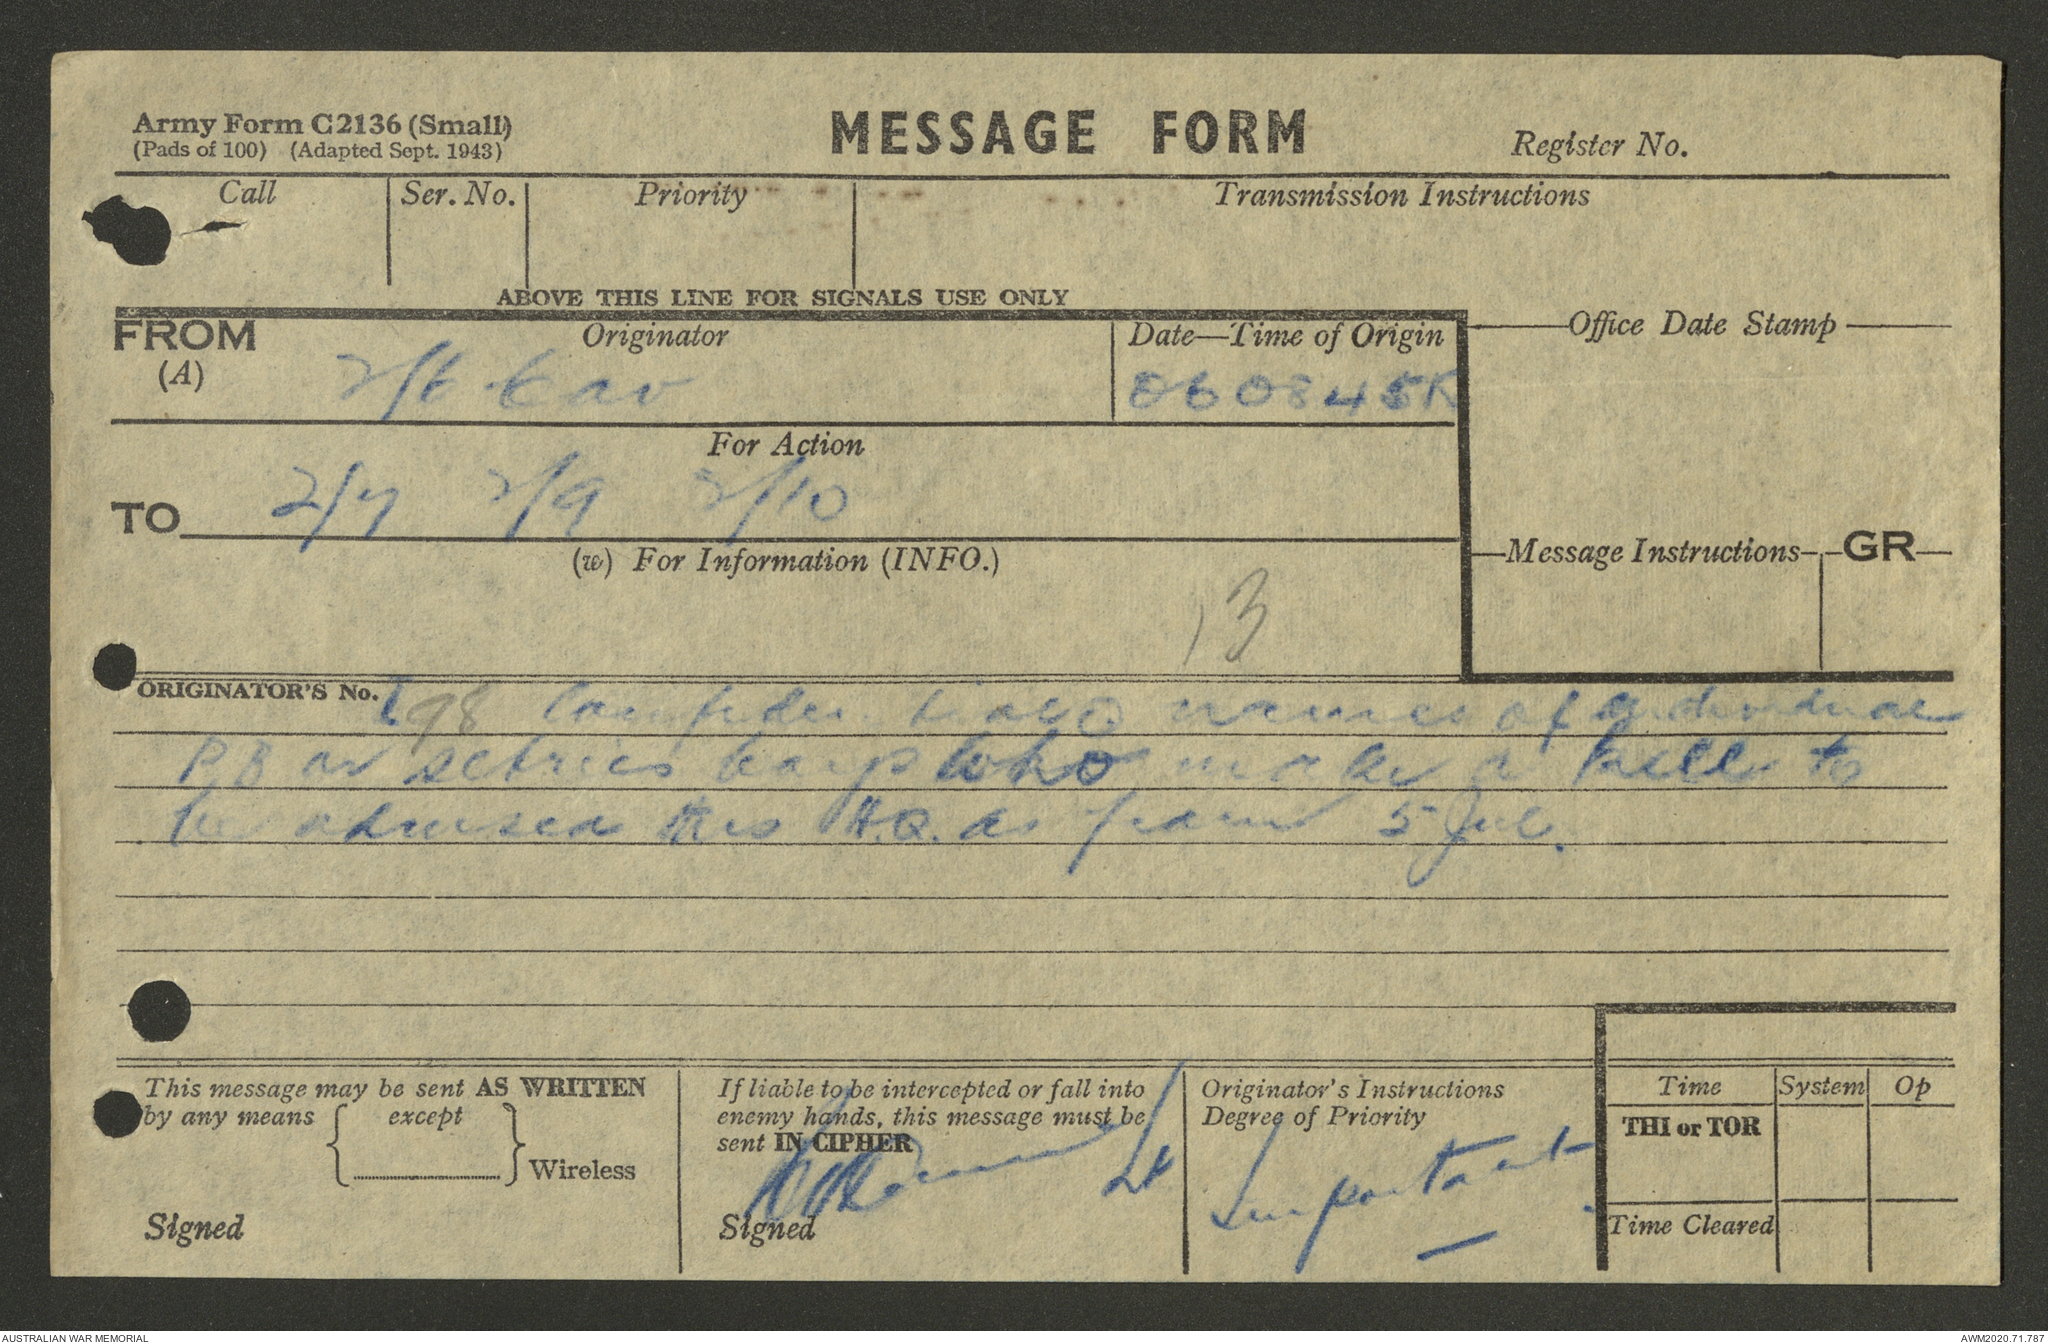 Army Form C2136 (Small)
(Pads of 100) (Adapted Sept. 1943)
MESSAGE FORM
Register No.
Call
Ser. No.
Priority
Transmission Instructions
ABOVE THIS LINE FOR SIGNALS USE ONLY
FROM
(A)
Originator
2/6 Cav
Date—Time of Origin
060845K
Office Date Stamp
For Action
TO
2/7 2/9 2/10
(w) For Information (INFO.)
Message Instructions
GR
13
ORIGINATOR'S No.
I98 Confidential names of individual
or who make a kill to
be advised this H.Q. as from 5 Jul.
This message may be sent AS WRITTEN
by any means
except
Wireless
Signed
If liable to be intercepted or fall into
enemy hands, this message must be
sent IN CIPHER
Lt
Signed
Originator's Instructions
Degree of Priority
Important
Time
System
Op
THI or TOR
Time Cleared
AUSTRALIAN WAR MEMORIAL
AWM2020.71.787